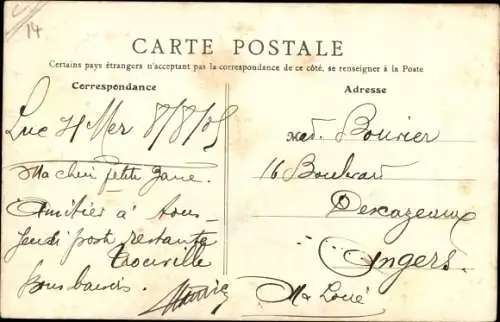 14
CARTE POSTALE
Certains pays étrangers n'acceptant pas la correspondance de ce côté, se renseigner à la Poste
Correspondance
Adresse
Luc s/ Mer 8/8/05
Mad. Bouvier
16 Boulevard
Descazeaux
Angers.
Mne Loire
Ma chère petite Jane.
Amitiés à tous
Jeudi poste restante
Trouville
Bons baisers.